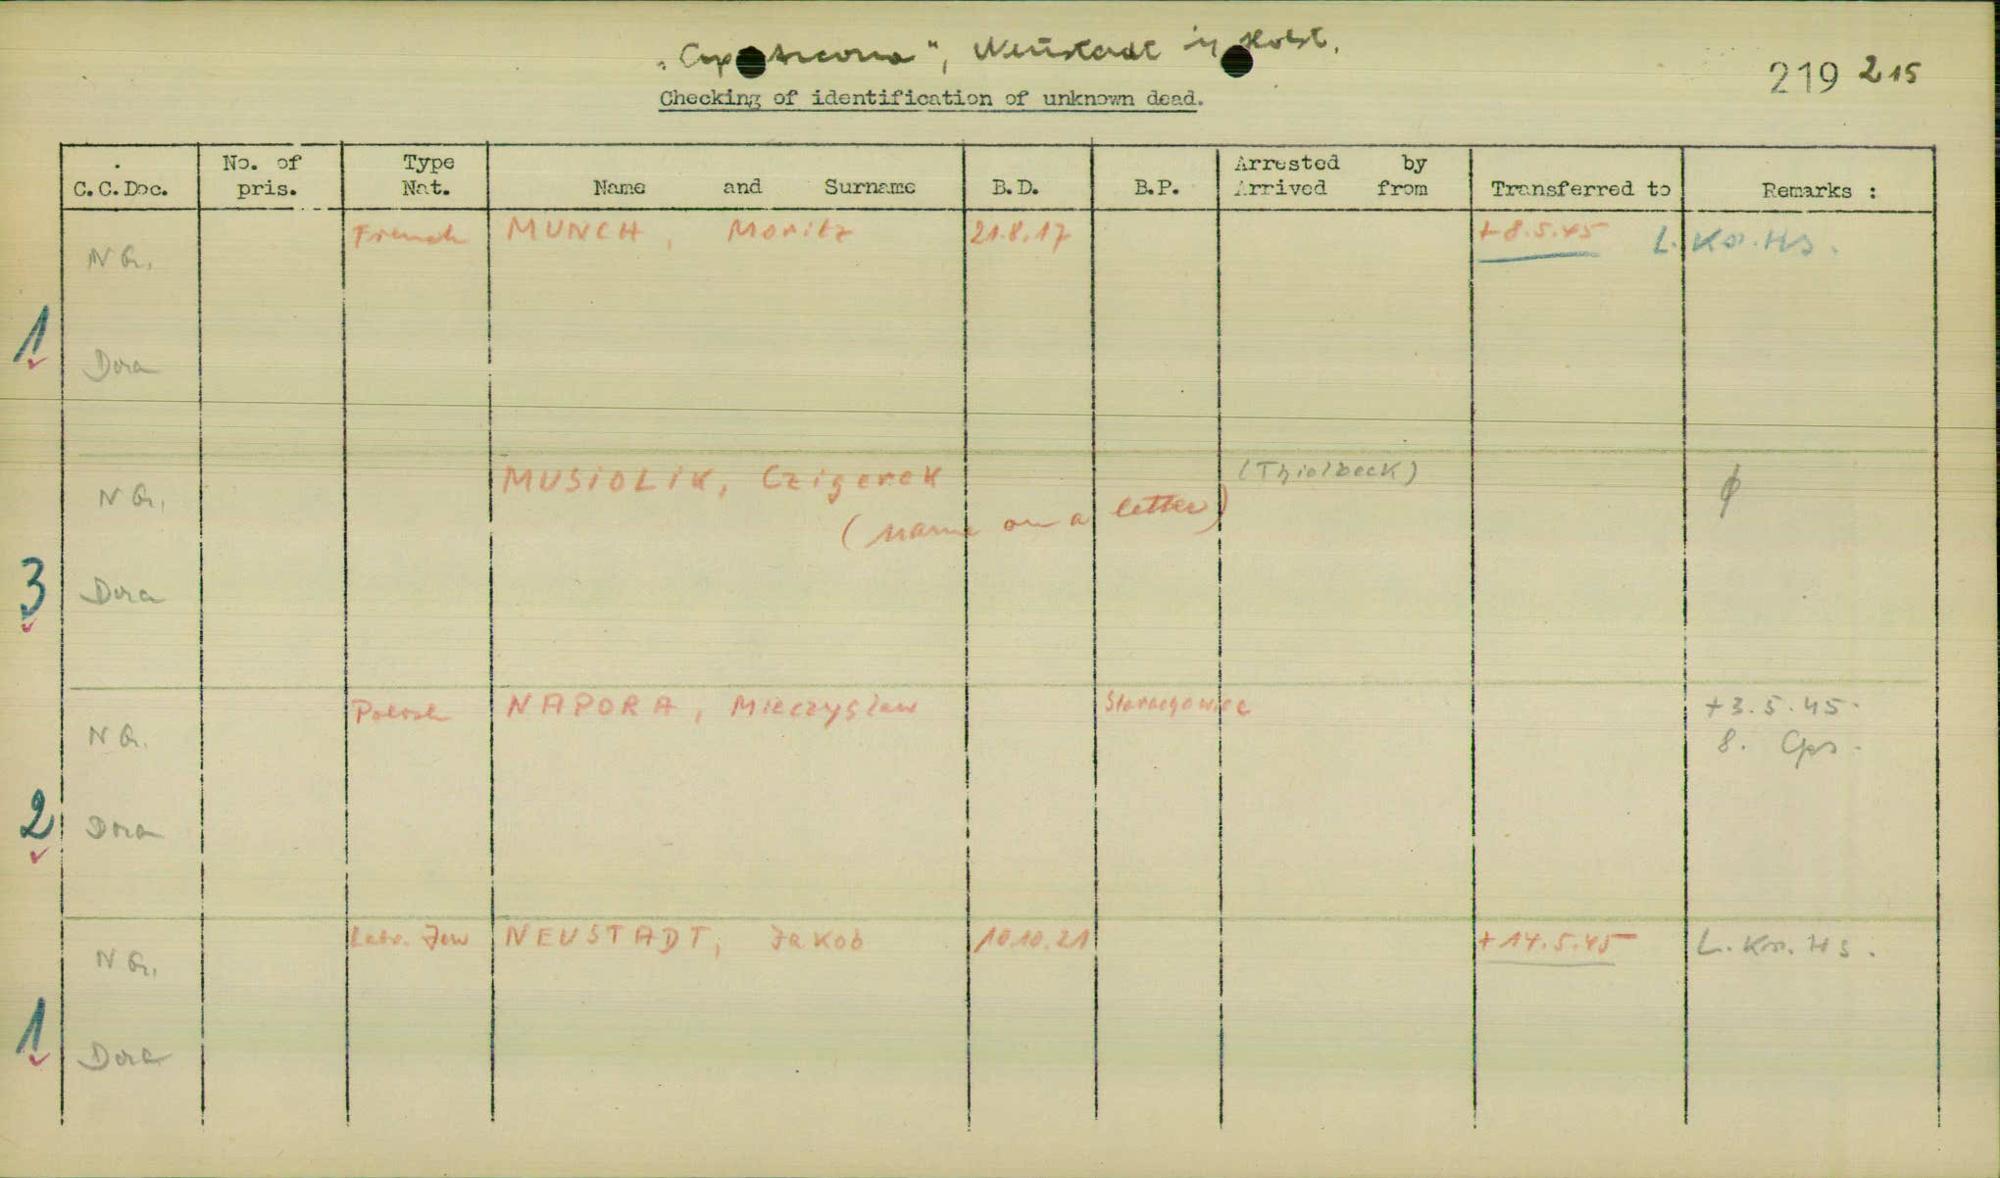 „Cap Arcona", Neustadt in Holst.
219 215
Checking of identification of unknown dead.
C.C.Doc. No. of pris. Type Nat. Name and Surname B.D. B.P. Arrested by Arrived from Transferred to Remarks :
French MUNCH, Moritz 21.8.17 +8.5.45 L. Kr. Hs.
N G.
1
Dora
MUSIOLIK, Czigerek (Thielbeck) ∮
N G. (name on a letter)
3 Dora
Polish NAPORA, Mieczyslaw Starachowice +3.5.45.
N G. 8. Cps.
2 Dora
Latv. Jew NEUSTADT, Jakob 10.10.21 +14.5.45 L. Kr. Hs.
N G.
1
Dora